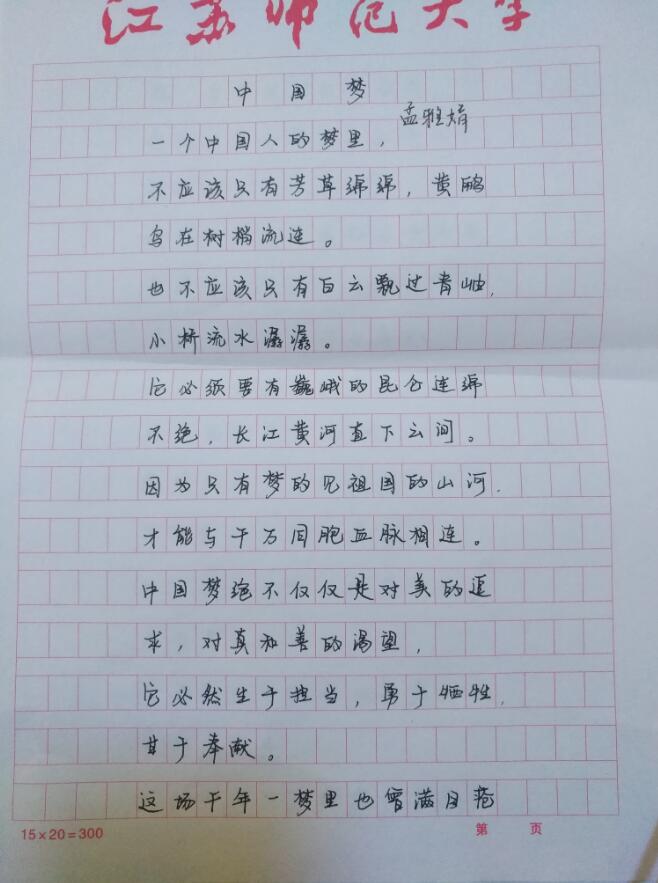 江苏师范大学
中国梦
孟雅娟
一个中国人的梦里，
不应该只有芳草绵绵，黄鹂
鸟在树梢流连。
也不应该只有白云飘过青岫，
小桥流水潺潺。
它必须要有巍峨的昆仑连绵
不绝，长江黄河直下云间。
因为只有梦的见祖国的山河，
才能与千万同胞血脉相连。
中国梦绝不仅仅是对美的追
求，对真和善的渴望，
它必然生于担当，勇于牺牲，
甘于奉献。
这场千年一梦里也曾满目苍
15×20=300
第 页